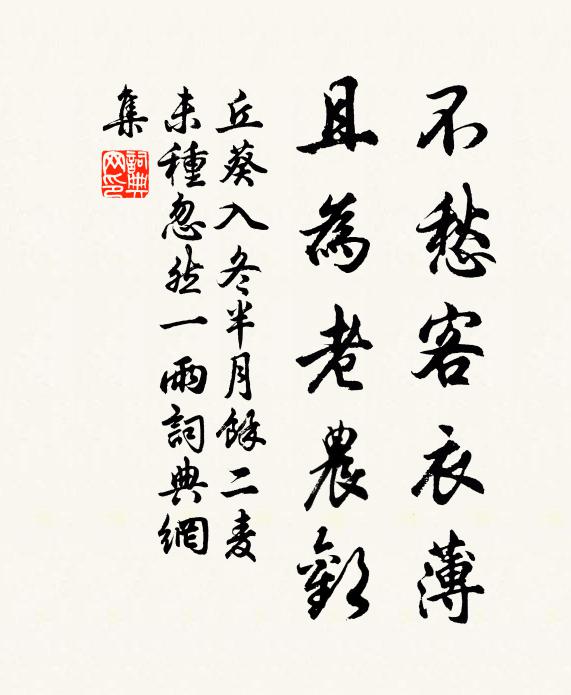 不愁客衣薄
且為老農歡
丘葵入冬半月餘二麦
未種忽然一雨詞典網
集
詞典
网印